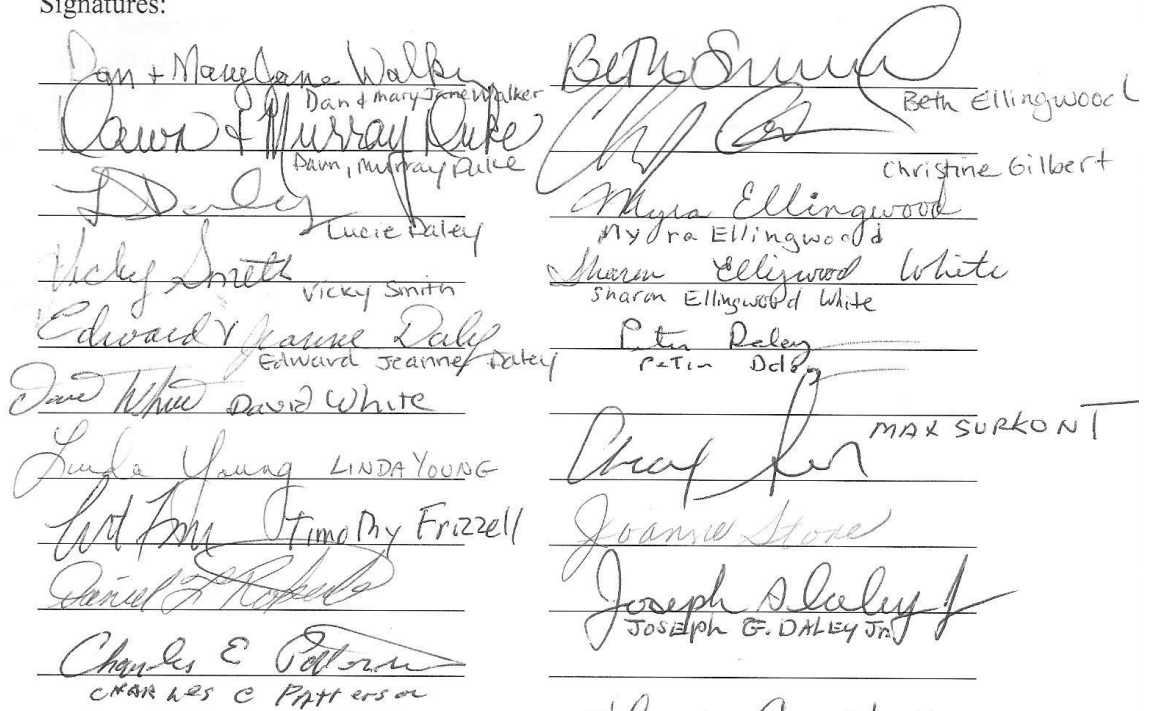 Signatures:
Dan + Mary Jane Walker
Dan & Mary Jane Walker
Dawn & Murray Duke
Dawn, Murray Duke
L Daley
Lucie Daley
Vicky Smith
Vicky Smith
Edward & Jeanne Daley
Edward Jeanne Daley
Dave White David White
Linda Young LINDA YOUNG
Timothy Frizzell
Daniel L Roberts
Charles E Patterson
CHARLES E PATTERSON
Beth
Beth Ellingwood
Christine Gilbert
Myra Ellingwood
Myra Ellingwood
Sharon Ellingwood White
Sharon Ellingwood White
Peter Daley
Peter Daley
MAX SURKONT
Joannie Stone
Joseph Daley Jr
JOSEPH G. DALEY Jr